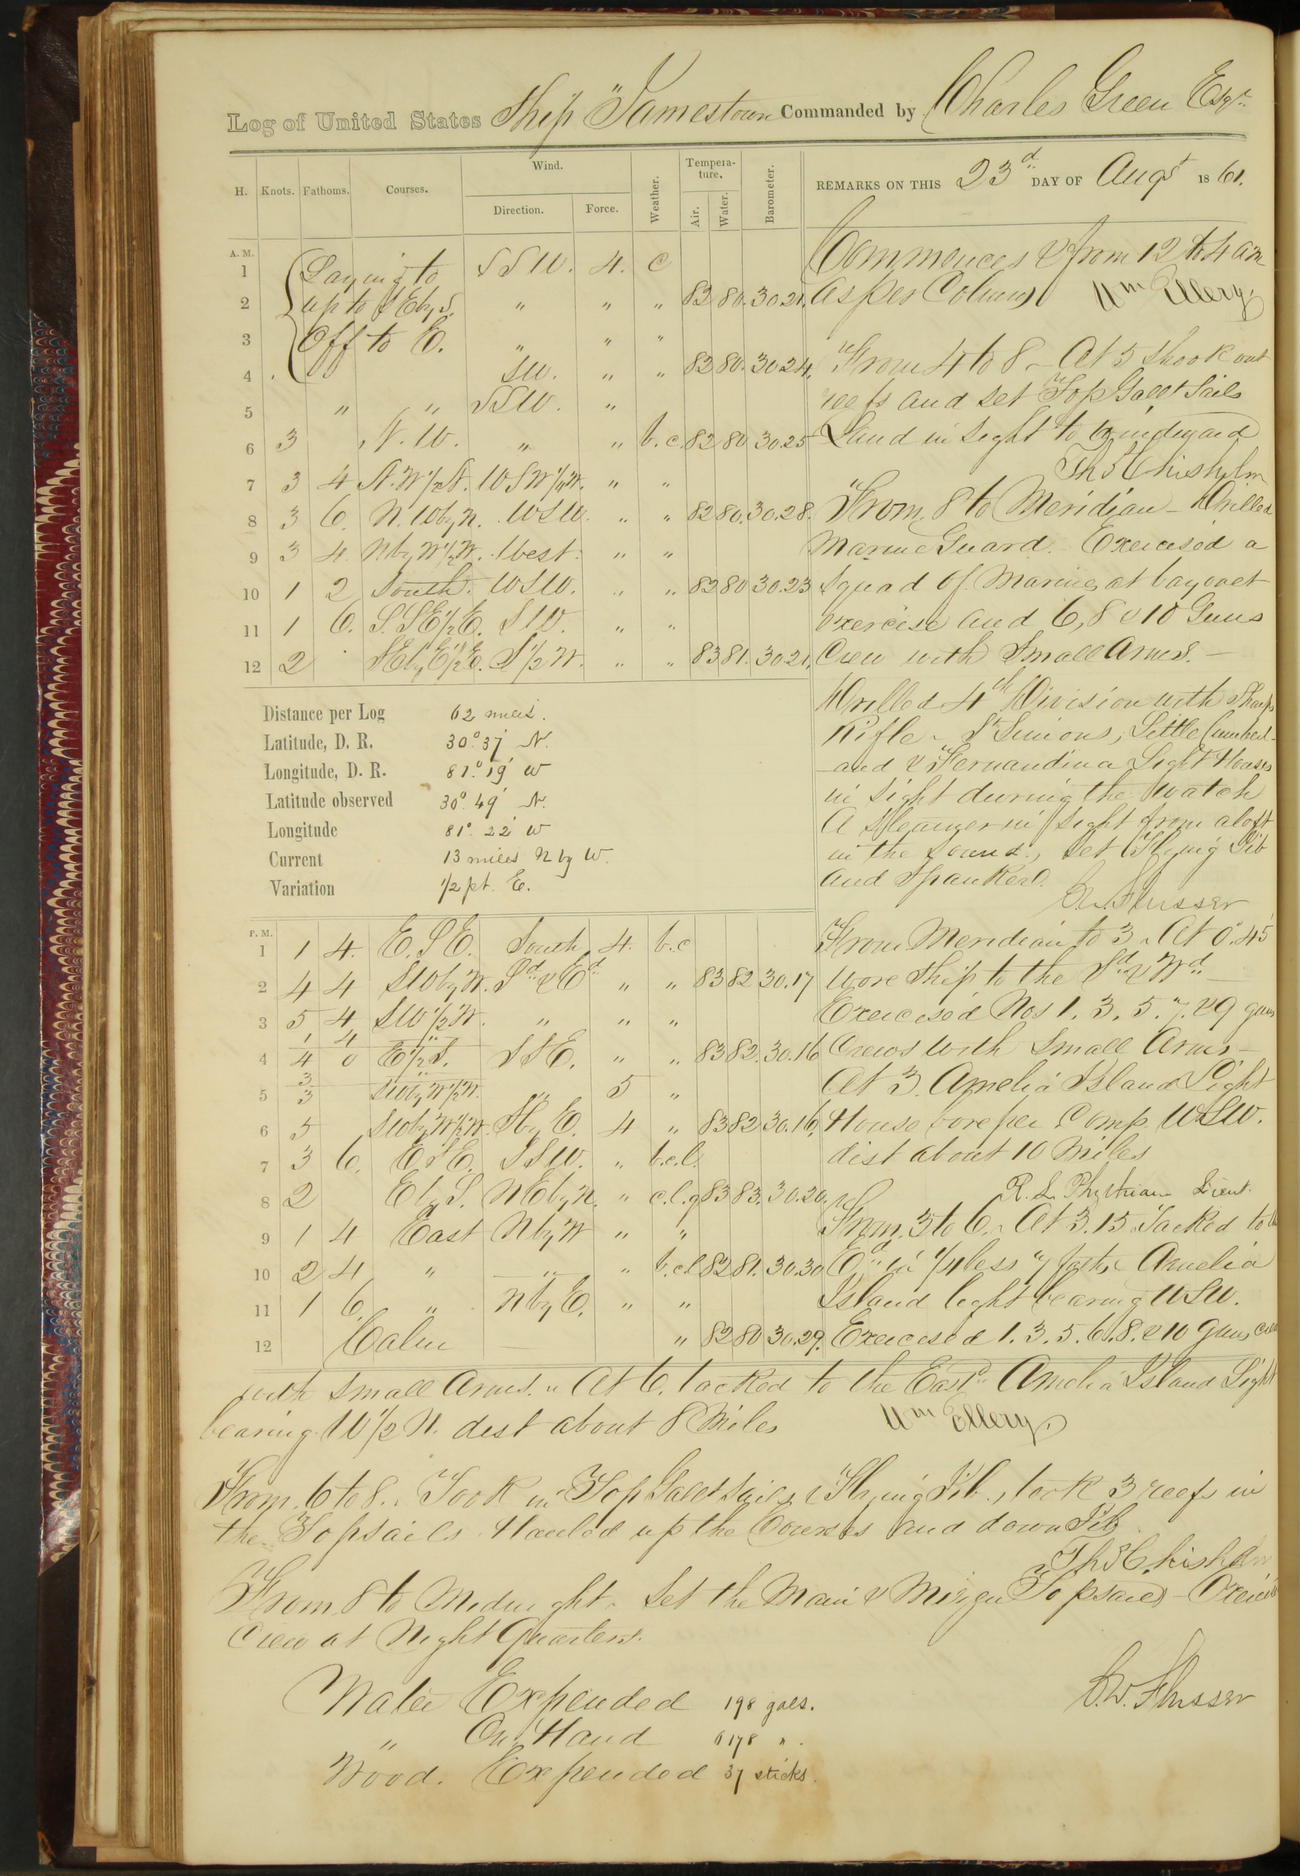 Log of United States Ship "Jamestown" Commanded by Charles Green Esqr.
H. Knots. Fathoms. Courses. Wind. Direction. Force. Weather. Temperature. Air. Water. Barometer.
REMARKS ON THIS 23d. DAY OF Augst 1861.
A. M.
1 Laying to SSW. 4. c
2 up to SEbyS. " " " 82 80. 30.21.
3 Off to E. " " "
4 SW. " " 82 80. 30.24.
5 " " SSW. "
6 3 N.W. " " b.c. 82 80 30.25
7 3 4 N.W 1/2 N. WSW 1/4 W. " "
8 3 6. N.WbyN. WSW. " " 82 80. 30.28.
9 3 4. NbyW 1/2 W. West. " "
10 1 2 South. WSW. " " 82 80 30.23
11 1 6. S.SE 1/2 E. SW. " "
12 2 SEbyE 1/2 E. S 1/2 W. " " 83 81. 30.21.
Commences & from 12 to 4 am
as per Column Wm Ellery.
From 4 to 8. At 5 shook out
reefs and set Top Gallt Sails
Land in sight to windward
Th. S. Chisholm
From 8 to Meridian - Drilled
Marine Guard. Exercised a
squad of Marines at bayonet
exercise and 6, 8 & 10 Guns
Crew with Small Arms. -
Drilled 4th Division with Sharps
Rifle. St Simons, Little Cumberl-
-and & Fernandina Light Houses
in sight during the watch
A Steamer in sight from aloft
in the sound, set Flying Jib
and Spanker.
C.W. Flusser
Distance per Log 62 miles.
Latitude, D. R. 30° 37' N.
Longitude, D. R. 81° 19' W
Latitude observed 30° 49' N.
Longitude 81° 22' W
Current 13 miles N by W.
Variation 1/2 pt. E.
P. M.
1 1 4. E.SE. South 4. b.c
2 4 4 SWbyW. Sd & Ed " " 83 82 30.17
3 5 4 SW 1/2 W. " " "
4 1 4 4 0 " E 1/2 S. SSE. " " 83 82. 30.16
5 3 3 " SWbyW 1/2 W. " 5 "
6 5 SWbyW 1/2 W. SbyE. 4 " 83 82 30.16.
7 3 6. ESE. SSW. " b.c.l.
8 2 EbyS. NEbyN. " c.l.q 83 83. 30.20.
9 1 4 East NbyW " "
10 2 4 " " " b.c.l 82 81. 30.30
11 1 6. " NbyE. " "
12 Calm " 82 80 30.29.
From Meridian to 3. At 0.45
wore Ship to the Sd & Wd. -
Exercised Nos 1. 3. 5. 7. & 9 guns
Crews with Small Arms -
At 3. Amelia Island Light
House bore per Comp. WSW.
dist about 10 Miles
R. L. Phythian Lieut.
From 3 to 6. At 3.15 Tacked to
Ed. in 1/4 less 7 faths Amelia
Island light bearing WSW.
Exercised 1. 3. 5. 6. 8. & 10 guns crew
with small Arms. At 6. tacked to the Eastd. Amelia Island Light
bearing W 1/2 N. dist about 8 Miles Wm Ellery
From 6 to 8. Took in Top Gallt Sails & Flying Jib, took 3 reefs in
the Topsails. Hauled up the Courses and down Jib
Th. S. Chisholm
From 8 to Midnight. Set the Main & Mizzen Topsails - Exercised
Crew at Night Quarters.
C.W. Flusser
Water Expended 198 gals.
" On Hand 6178 ".
Wood. Expended 37 sticks.